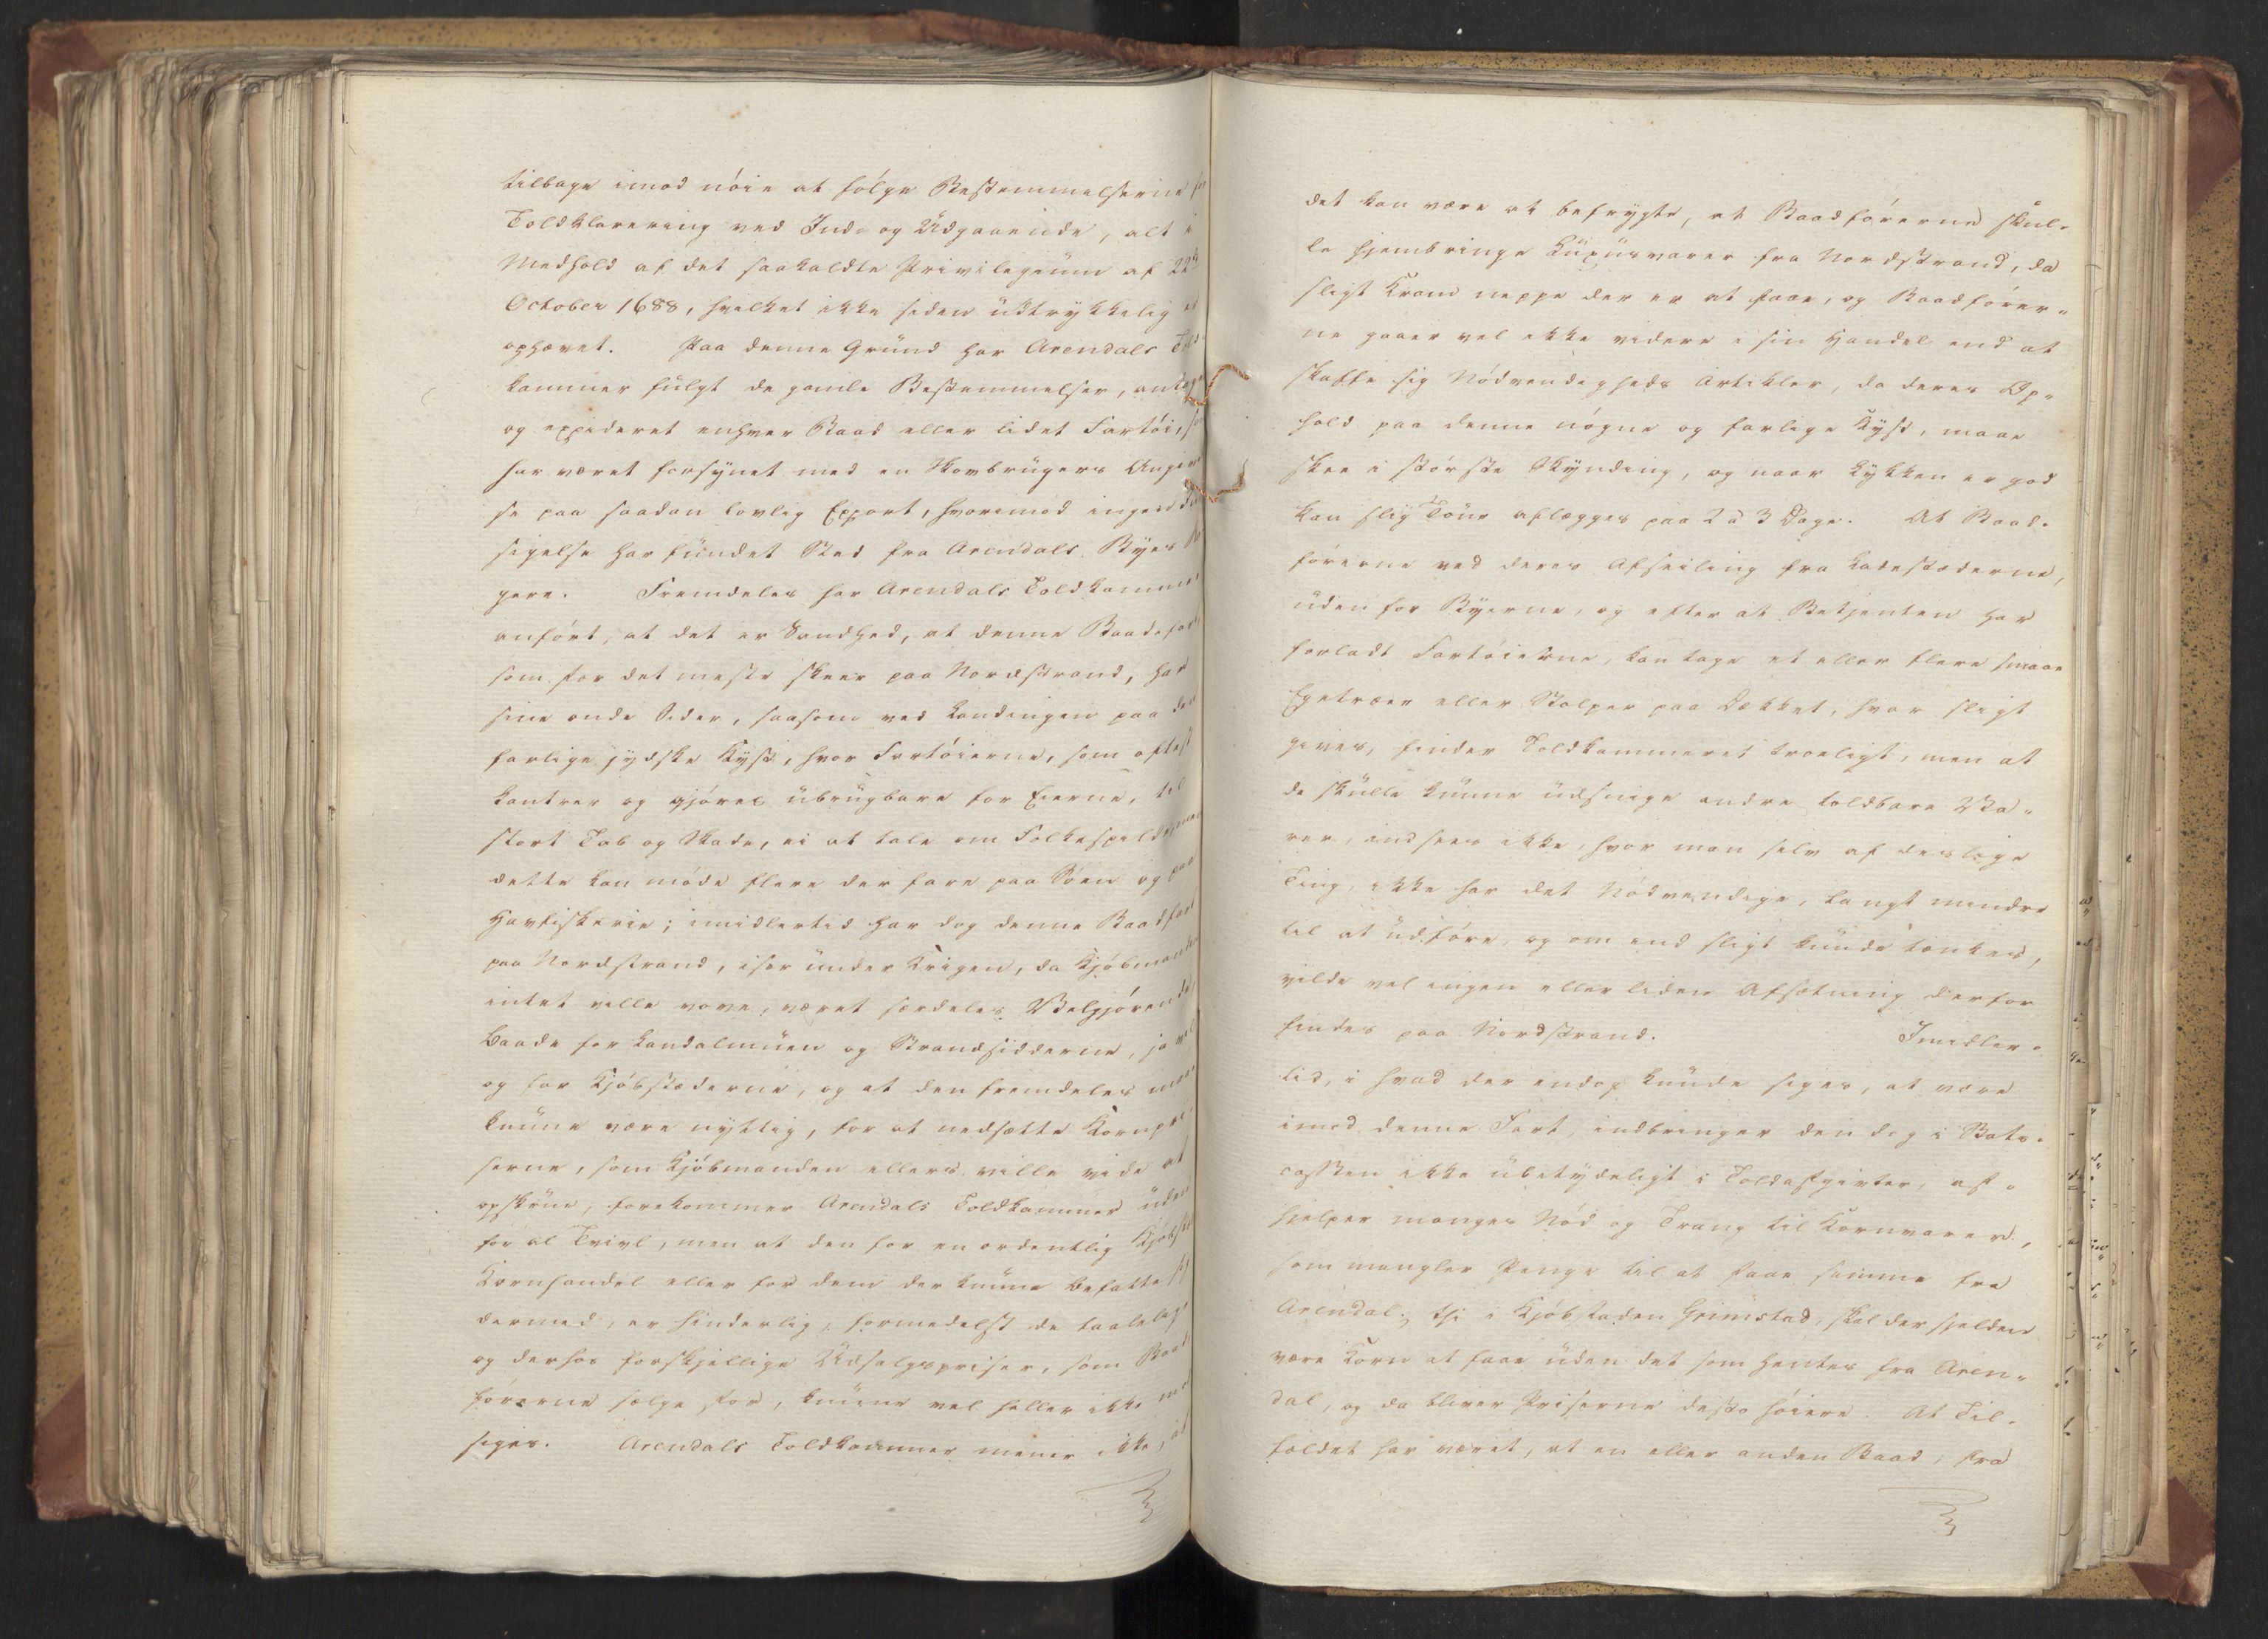 tilbage imod nöie at fölge Bestemmelserne
Toldklarering ved Ind- og Udgaaende, alt i
Medhold af det saakaldte Privilegium af 22de
October 1688, hvilket ikke siden udtrykkelig er
ophævet. Paa denne Grund har Arendals Told-
kammer fulgt de gamle Bestemmelser, antaget
og expederet enhver Baad eller lidet Fartöi, som
har været forsynet med en Skovbrugers Angivel-
se paa saadan lovlig Export, hvorimod ingen
sigelse har fundet Sted fra Arendals Byes Bor-
gere. Fremdeles har Arendals Toldkammer
anfört, at det er Sandhed, at denne Baadefart
som for det meste skeer paa Nordstrand, har
sine onde Sider, saasom ved Landingen paa den
farlige jydske Kyst, hvor Fartöierne, som oftest
kantrer og gjöres ubrugbare for Eierne, til
stort Tab og Skade, ei at tale om Folkespild,
dette kan möde flere der fare paa Söen og paa
Havfiskerie; imidlertid har dog denne Baadfart
paa Nordstrand, især under Krigen, da Kjöbmanden
intet ville vove, været særdeles Velgjörende,
baade for Landalmuen og Strandsidderne, ja vel
og for Kjöbstæderne, og at den fremdeles maae
kunne være nyttig, for at nedsætte Kornpri-
serne, som Kjöbmanden ellers ville vide at
opskrue, forekommer Arendals Toldkammer uden
for al Tvivl, men at den for en ordentlig Kjöbsted
Kornhandel eller for dem der kunne befatte sig
dermed, er hinderlig, formedelst de taalelige
og derhos forskjellige Udsalgspriser, som Baad-
förerne sælge for, kunne vel heller ikke mod-
siges. Arendals Toldkammer mener ikke, at
det kan være at befrygte, at Baadförerne skul-
le hjembringe Luxusvarer fra Nordstrand, da
sligt Kram neppe der er at faae, og Baadförer-
ne gaaer vel ikke videre i sin Handel end at
skaffe sig Nödvendigheds Artikler, da deres Op-
hold paa denne nögne og farlige Kyst, maae
skee i störste Skynding, og naar Lykken er god
kan slig Tour aflægges paa 2 à 3 Dage. At Baad-
förerne ved deres Afseiling fra Ladestæderne,
uden for Byerne, og efter at Betjenten har
forladt Fartöierne, kan tage et eller flere smaae
Egetræer eller Stolper paa Dækket, hvor sligt
gives, finder Toldkammeret troeligt, men at
de skulle kunne udsnige andre toldbare Va-
rer, indsees ikke, hvor man selv af deslige
Ting, ikke har det Nödvendige, langt mindre
til at udföre, og om end sligt kunde tænkes,
vilde vel ingen eller liden Afsætning derfor
findes paa Nordstrand. Imidler-
tid, i hvad der endog kunde siges, at være
imod denne Fart, indbringer den dog i Stats-
cassen ikke ubetydeligt i Toldafgivter, af-
hjelper manges Nöd og Trang til Kornvarer,
som mangler Penge til at faae samme fra
Arendal; thi i Kjöbstaden Grimstad, skal der sjelden
være Korn at faae uden det som hentes fra Aren-
dal, og da bliver Priserne desto höiere. At Til-
fældet har været, at en eller anden Baad, fra